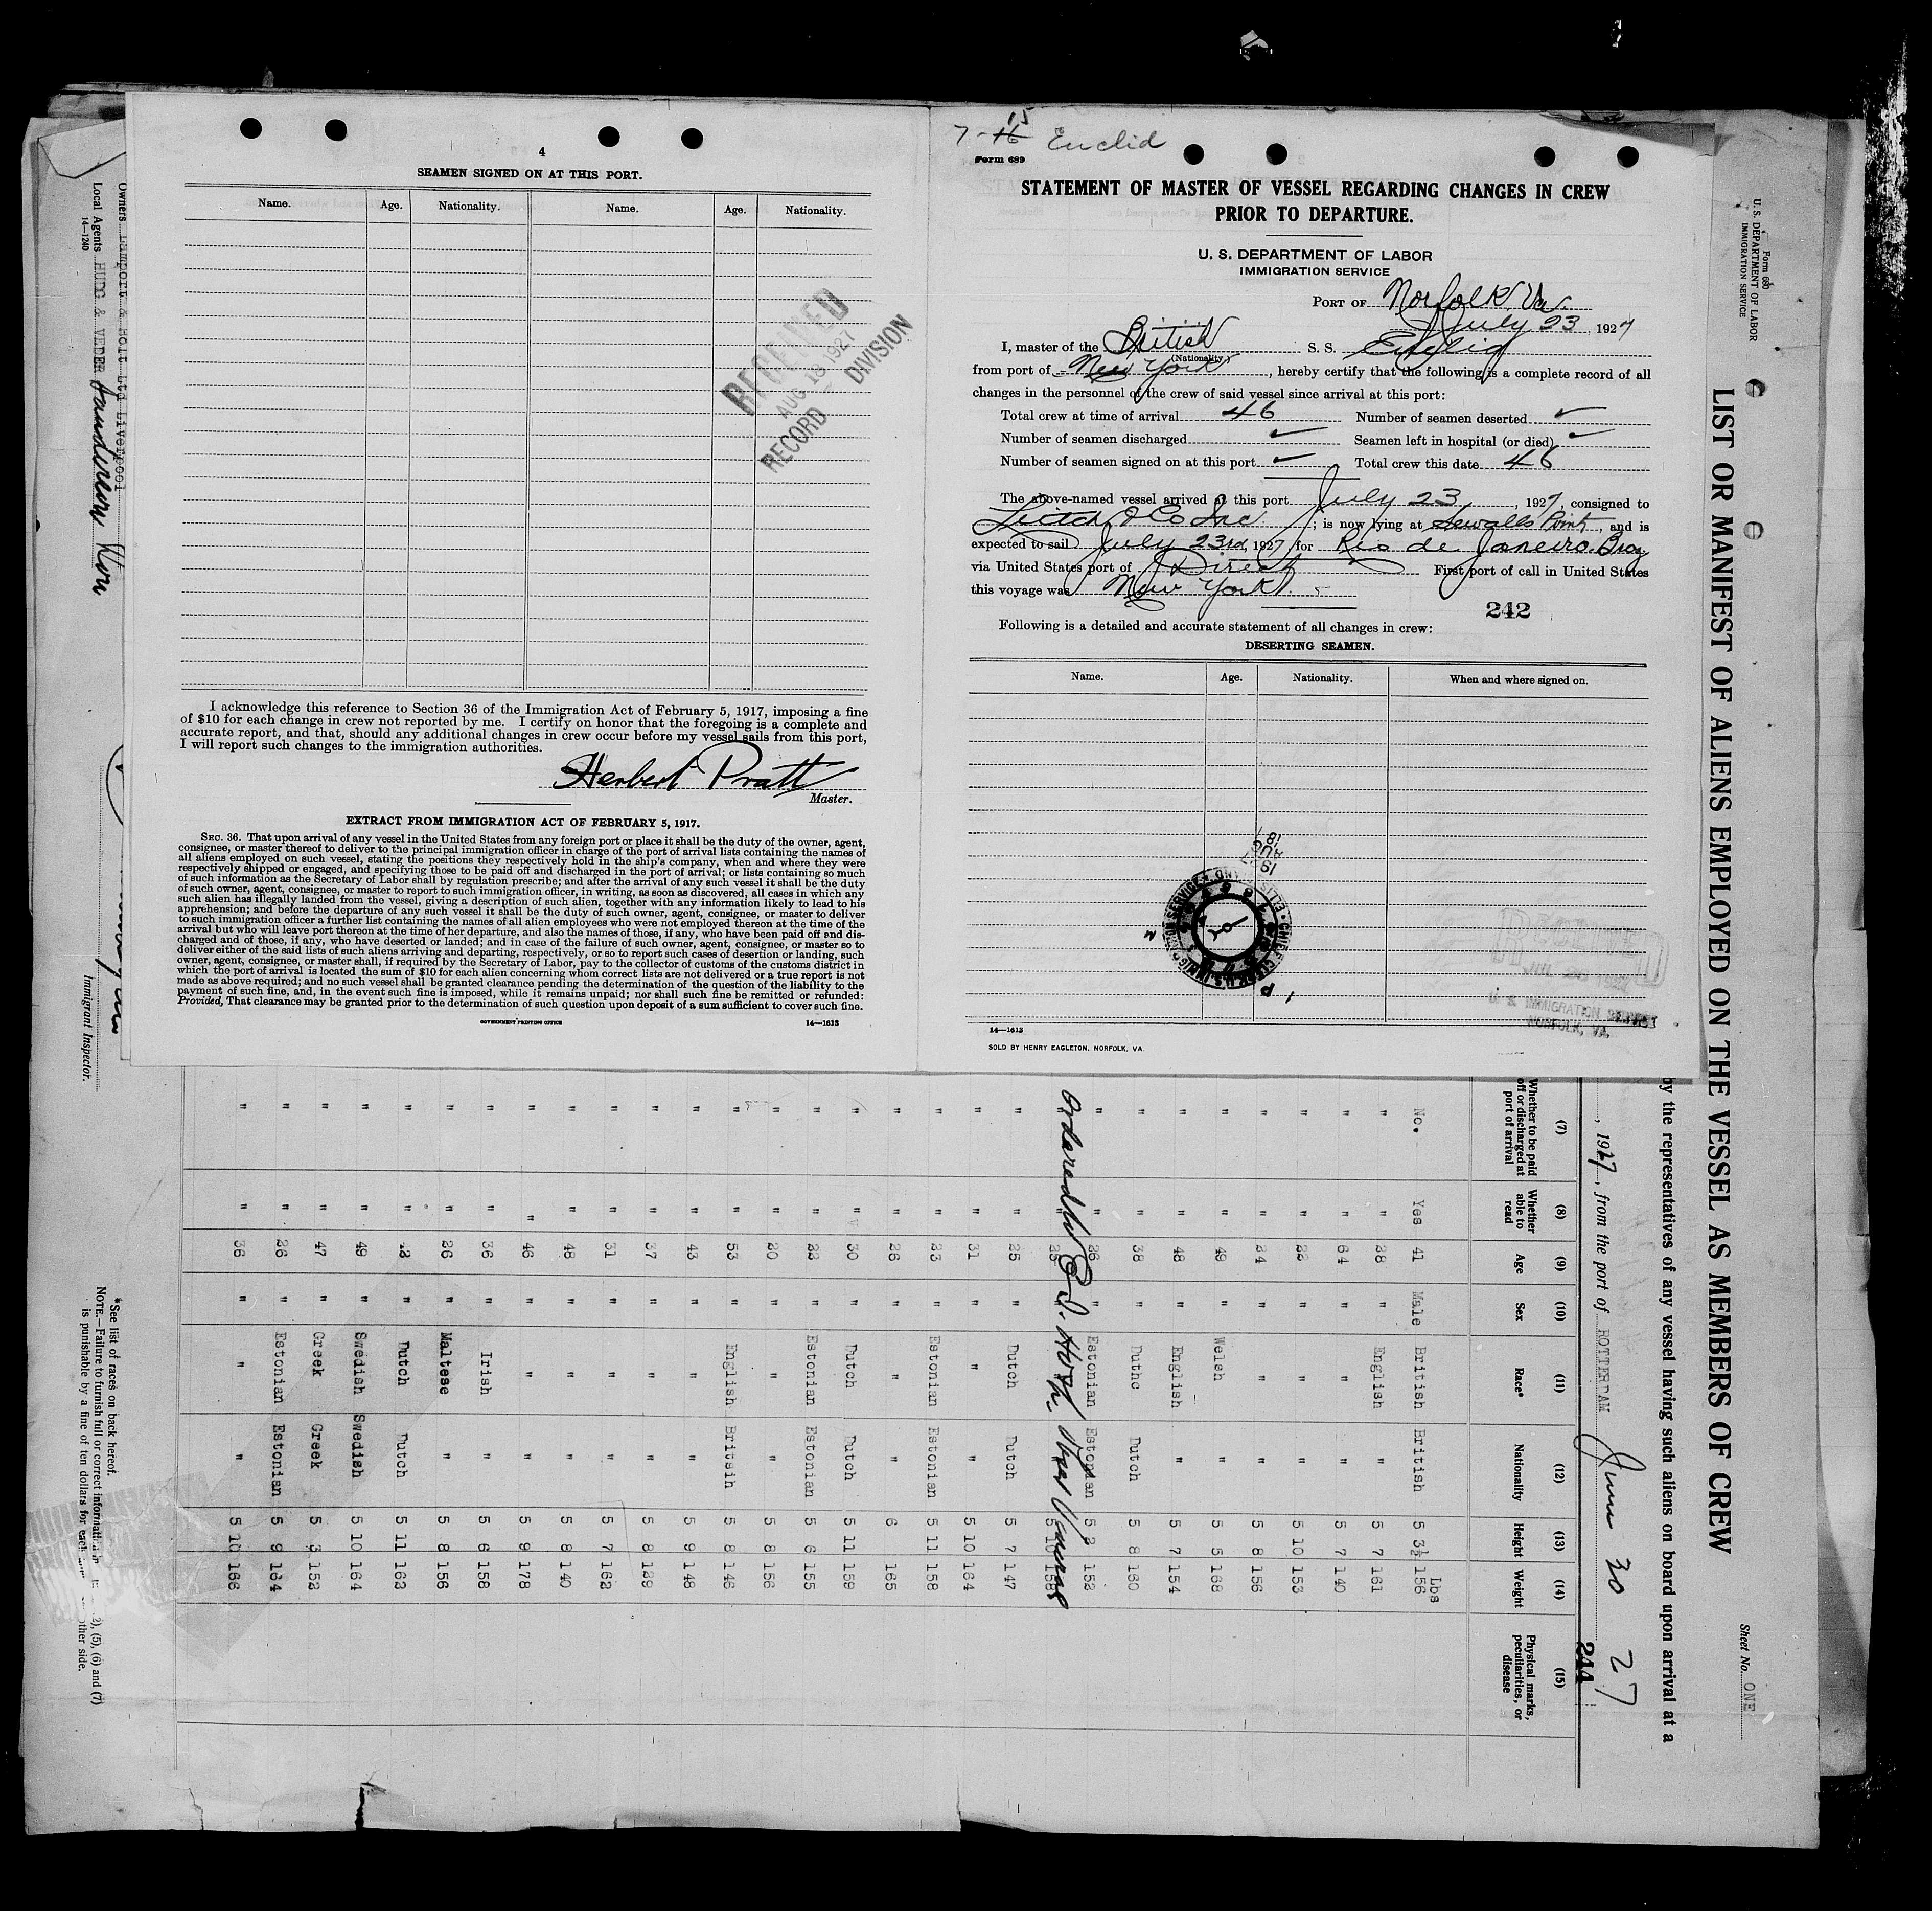 4
SEAMEN SIGNED ON AT THIS PORT.
Name. Age. Nationality. Name. Age. Nationality.
RECEIVED
AUG 18 1927
RECORD DIVISION
I acknowledge this reference to Section 36 of the Immigration Act of February 5, 1917, imposing a fine
of $10 for each change in crew not reported by me. I certify on honor that the foregoing is a complete and
accurate report, and that, should any additional changes in crew occur before my vessel sails from this port,
I will report such changes to the immigration authorities.
Herbert Pratt
Master.
EXTRACT FROM IMMIGRATION ACT OF FEBRUARY 5, 1917.
SEC. 36. That upon arrival of any vessel in the United States from any foreign port or place it shall be the duty of the owner, agent,
consignee, or master thereof to deliver to the principal immigration officer in charge of the port of arrival lists containing the names of
all aliens employed on such vessel, stating the positions they respectively hold in the ship's company, when and where they were
respectively shipped or engaged, and specifying those to be paid off and discharged in the port of arrival; or lists containing so much
of such information as the Secretary of Labor shall by regulation prescribe; and after the arrival of any such vessel it shall be the duty
of such owner, agent, consignee, or master to report to such immigration officer, in writing, as soon as discovered, all cases in which any
such alien has illegally landed from the vessel, giving a description of such alien, together with any information likely to lead to his
apprehension; and before the departure of any such vessel it shall be the duty of such owner, agent, consignee, or master to deliver
to such immigration officer a further list containing the names of all alien employees who were not employed thereon at the time of the
arrival but who will leave port thereon at the time of her departure, and also the names of those, if any, who have been paid off and dis-
charged and of those, if any, who have deserted or landed; and in case of the failure of such owner, agent, consignee, or master so to
deliver either of the said lists of such aliens arriving and departing, respectively, or so to report such cases of desertion or landing, such
owner, agent, consignee, or master shall, if required by the Secretary of Labor, pay to the collector of customs of the customs district in
which the port of arrival is located the sum of $10 for each alien concerning whom correct lists are not delivered or a true report is not
made as above required; and no such vessel shall be granted clearance pending the determination of the question of the liability to the
payment of such fine, and, in the event such fine is imposed, while it remains unpaid; nor shall such fine be remitted or refunded:
Provided, That clearance may be granted prior to the determination of such question upon deposit of a sum sufficient to cover such fine.
GOVERNMENT PRINTING OFFICE 14—1613
7-16 15 Euclid
Form 689
STATEMENT OF MASTER OF VESSEL REGARDING CHANGES IN CREW
PRIOR TO DEPARTURE.
U. S. DEPARTMENT OF LABOR
IMMIGRATION SERVICE
PORT OF Norfolk Va.
July 23, 1927
I, master of the British S. S. Euclid
(Nationality.)
from port of New York, hereby certify that the following is a complete record of all
changes in the personnel of the crew of said vessel since arrival at this port:
Total crew at time of arrival 46 Number of seamen deserted ✓
Number of seamen discharged ✓ Seamen left in hospital (or died) ✓
Number of seamen signed on at this port ✓ Total crew this date 46
The above-named vessel arrived at this port July 23, 1927, consigned to
Leitch & Co Inc; is now lying at Sewalls Point, and is
expected to sail July 23rd, 1927 for Rio de Janeiro. Braz
via United States port of Direct First port of call in United States
this voyage was New York.
242
Following is a detailed and accurate statement of all changes in crew:
DESERTING SEAMEN.
Name. Age. Nationality. When and where signed on.
AUG 18
1927
RECEIVED
U. S. IMMIGRATION SERVICE
NORFOLK, VA.
14—1613
SOLD BY HENRY EAGLETON, NORFOLK, VA.
Form 680
U. S. DEPARTMENT OF LABOR
IMMIGRATION SERVICE
Sheet No. ONE
LIST OR MANIFEST OF ALIENS EMPLOYED ON THE VESSEL AS MEMBERS OF CREW
by the representatives of any vessel having such aliens on board upon arrival at a
, 1927, from the port of ROTTERDAM June 30 27
244
(7) (8) (9) (10) (11) (12) (13) (14) (15)
Whether to be paid off or discharged at port of arrival Whether able to read Age Sex Race* Nationality Height Weight Physical marks, peculiarities, or disease
Lbs
No. Yes 41 Male British British 5 3½ 156
" " 28 " English " 5 7 161
" " 64 " " " 5 7 140
" " 22 " " " 5 10 153
" " 24 " " " 5 8 156
" " 49 " Welsh " 5 5 168
" " 48 " English " 5 7 154
" " 38 " Duthc Dutch 5 8 160
" " 26 " Estonian Estonian 5 2 152
" " 25 " Dutch Dutch 5 7 147
" " 31 " " " 5 10 164
" " 23 " Estonian Estonian 5 11 158
" " 26 " " " 6 165
" " 30 " Dutch Dutch 5 11 159
" " 22 " Estonian Estonian 5 6 155
" " 20 " " " 5 8 156
" " 53 " English Britsih 5 8 146
" " 43 " " " 5 9 148
" " 37 " " " 5 8 139
" " 31 " " " 5 7 162
" " 48 " " " 5 8 140
" " 46 " " " 5 9 178
" " 36 " Irish " 5 6 158
" " 26 " Maltese " 5 8 156
" " 42 " Dutch Dutch 5 11 163
" " 49 " Swedish Swedish 5 10 164
" " 47 " Greek Greek 5 3 152
" " 26 " Estonian Estonian 5 9 164
" " 36 " " " 5 10 166
*See list of races on back hereof.
NOTE.—Failure to furnish full or correct information in
is punishable by a fine of ten dollars for each
2), (5), (6) and (7)
other side.
Owners Lamport & Holt Ltd Liverpool
Local Agents
14—1240
Immigrant Inspector.